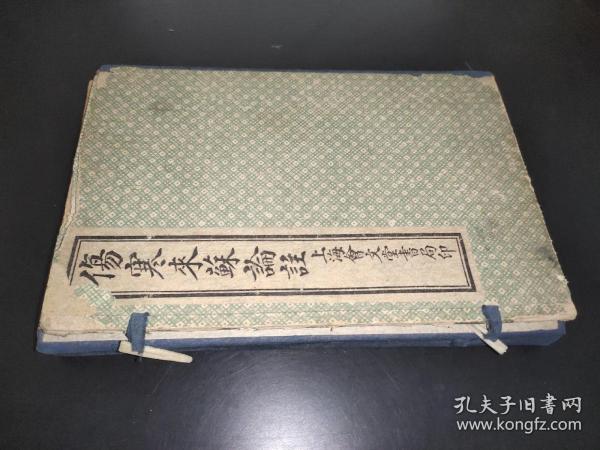 傷寒來蘇論註
上海會文堂書局印
孔夫子旧书网
www.kongfz.com